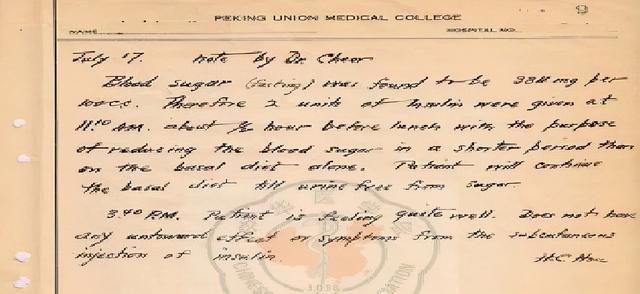 9
PEKING UNION MEDICAL COLLEGE
NAME HOSPITAL NO.
July 17. Note by Dr. Cheer
Blood sugar (fasting) was found to be mg per
100cc. Therefore 2 units of Insulin were given at
A.M. about ½ hour before lunch with the purpose
of reducing the blood sugar in a shorter period than
on the basal diet alone. Patient will continue
the basal diet till urine free from sugar.
P.M. Patient is feeling quite well. Does not have
any untoward effect or symptoms from the subcutaneous
injection of insulin. H.C.
CHINESE